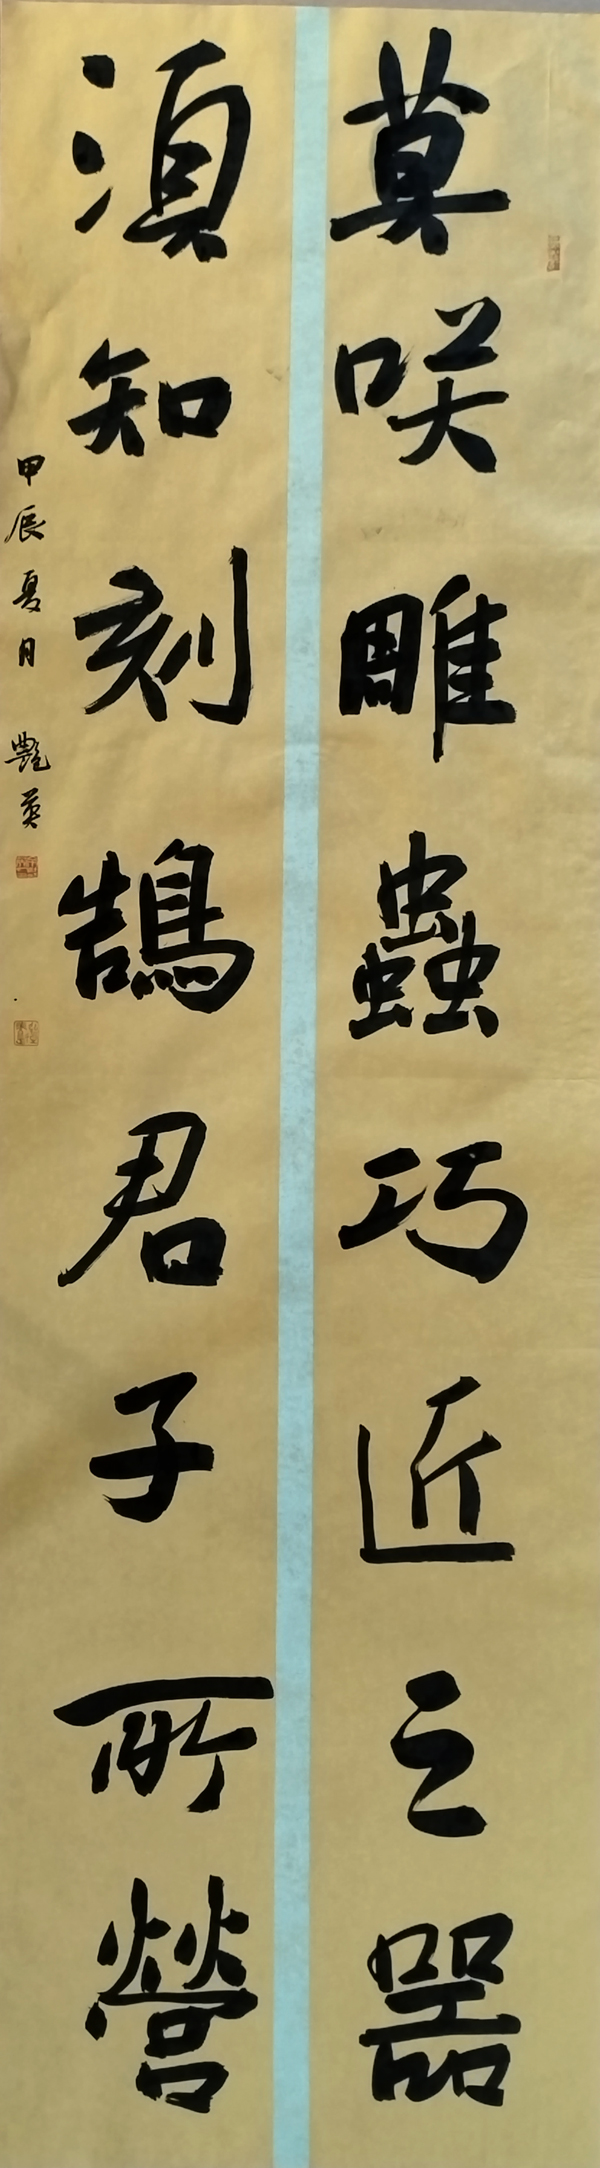 莫咲雕蟲巧近之器
須知刻鵠君子所營
甲辰夏月 艷英